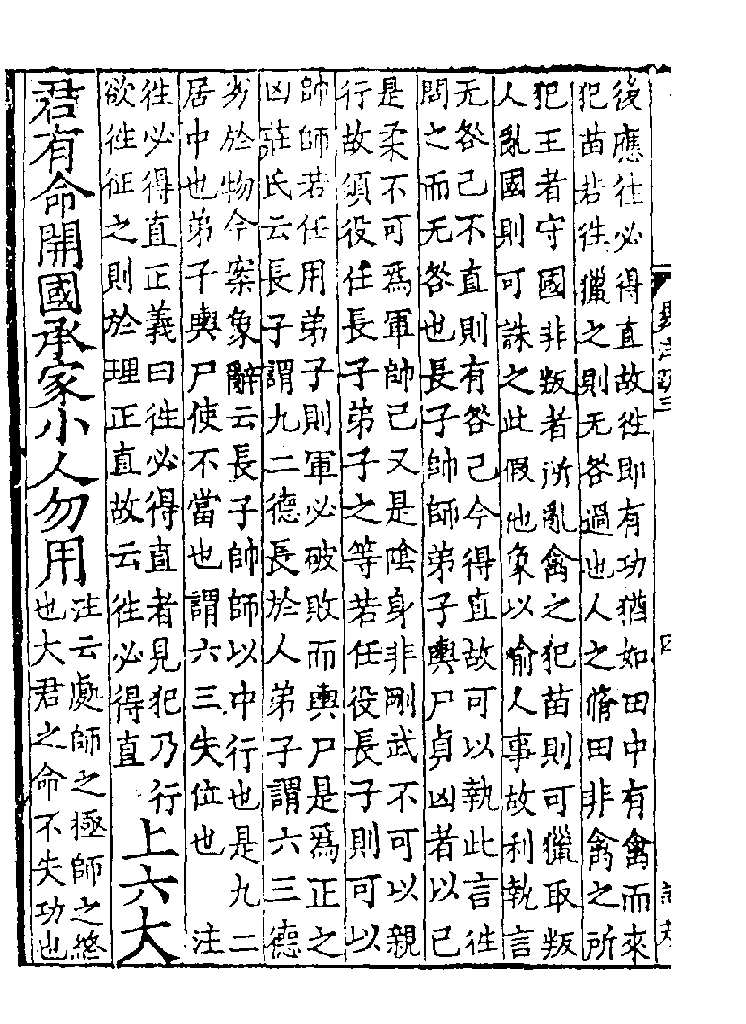 後應往必得直故往即有功猶如田中有禽而來
犯苗若往獵之則无咎過也人之脩田非禽之所
犯王者守國非叛者所亂禽之犯苗則可獵取叛
人亂國則可誅之此假他象以喻人事故利執言
无咎己不直則有咎己今得直故可以執此言往
問之而无咎也長子帥師弟子輿尸貞凶者以己
是柔不可爲軍帥己又是陰身非剛武不可以親
行故須役任長子弟子之等若任役長子則可以
帥師若任用弟子則軍必破敗而輿尸是爲正之
凶莊氏云長子謂九二德長於人弟子謂六三德
劣於物今案象辭云長子帥師以中行也是九二
居中也弟子輿尸使不當也謂六三失位也 注
往必得直正義曰往必得直者見犯乃行
欲往征之則於理正直故云往必得直
上六大
君有命開國承家小人勿用
注云處師之極師之終
也大君之命不失功也